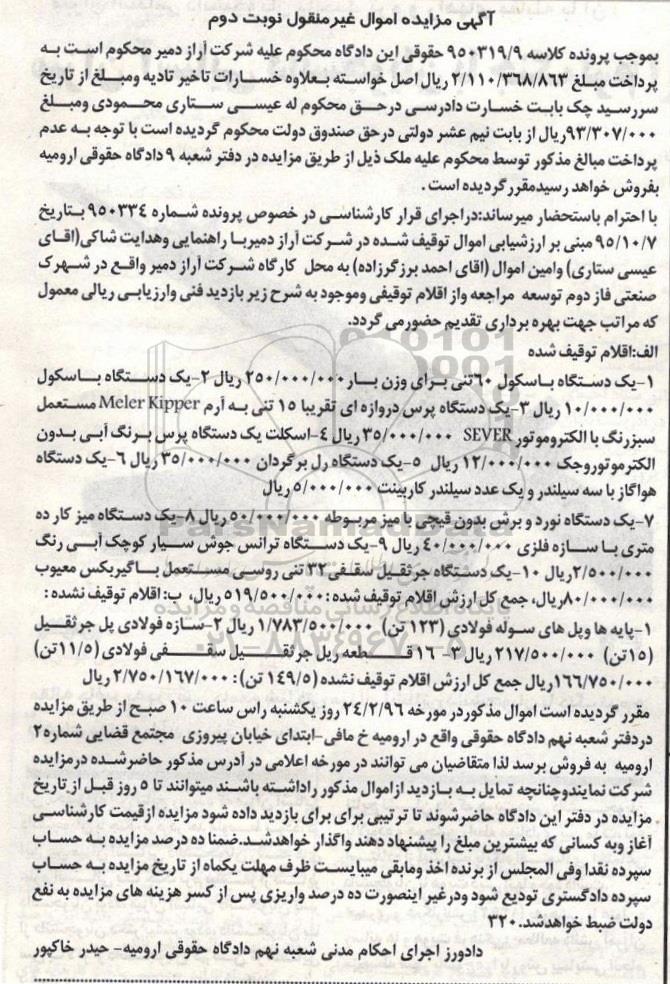 آگهی مزایده اموال غیرمنقول نوبت دوم
بموجب پرونده کلاسه ۹۵۰۳۱۹/۹ حقوقی این دادگاه محکوم علیه شرکت آراز دمیر محکوم است به
پرداخت مبلغ ۲/۱۱۰/۳۶۸/۸۶۳ ریال اصل خواسته بعلاوه خسارات تاخیر تادیه ومبلغ از تاریخ
سررسید چک بابت خسارت دادرسی درحق محکوم له عیسی ستاری محمودی ومبلغ
۹۳/۳۰۷/۰۰۰ریال از بابت نیم عشر دولتی درحق صندوق دولت محکوم گردیده است با توجه به عدم
پرداخت مبالغ مذکور توسط محکوم علیه ملک ذیل از طریق مزایده در دفتر شعبه ۹ دادگاه حقوقی ارومیه
بفروش خواهد رسیدمقررگردیده است .
با احترام باستحضار میرساند:دراجرای قرار کارشناسی در خصوص پرونده شماره ۹۵۰۳۳۴ بتاریخ
۹۵/۱۰/۷ مبنی بر ارزشیابی اموال توقیف شده در شرکت آراز دمیربا راهنمایی وهدایت شاکی(اقای
عیسی ستاری) وامین اموال (اقای احمد برزگرزاده) به محل کارگاه شرکت آراز دمیر واقع در شهرک
صنعتی فاز دوم توسعه مراجعه واز اقلام توقیفی وموجود به شرح زیر بازدید فنی وارزیابی ریالی معمول
که مراتب جهت بهره برداری تقدیم حضورمی گردد.
الف:اقلام توقیف شده
۱-یک دستگاه باسکول ۶۰تنی برای وزن بار ۲۵۰/۰۰۰/۰۰۰ ریال ۲-یک دستگاه باسکول
۱۰/۰۰۰/۰۰۰ ریال ۳-یک دستگاه پرس دروازه ای تقریبا ۱۵ تنی به آرم Meler Kipper مستعمل
سبزرنگ با الکتروموتور SEVER ۳۵/۰۰۰/۰۰۰ ریال ۴-اسکلت یک دستگاه پرس برنگ آبی بدون
الکترموتوروجک ۱۲/۰۰۰/۰۰۰ ریال ۵-یک دستگاه رل برگردان ۳۵/۰۰۰/۰۰۰ ریال ۶-یک دستگاه
هواگاز با سه سیلندر و یک عدد سیلندر کاربینت ۵/۰۰۰/۰۰۰ ریال
۷-یک دستگاه نورد و برش بدون قیچی با میز مربوطه ۵۰/۰۰۰/۰۰۰ ریال ۸-یک دستگاه میز کار ده
متری با سازه فلزی ۴۰/۰۰۰/۰۰۰ ریال ۹-یک دستگاه ترانس جوش سیار کوچک آبی رنگ
۲/۵۰۰/۰۰۰ریال ۱۰-یک دستگاه جرثقیل سقفی ۳۲ تنی روسی مستعمل باگیربکس معیوب
۸۰/۰۰۰/۰۰۰ریال، جمع کل ارزش اقلام توقیف شده :۵۱۹/۵۰۰/۰۰۰ ریال، ب: اقلام توقیف نشده :
۱-پایه ها وپل های سوله فولادی (۱۲۳ تن) ۱/۷۸۳/۵۰۰/۰۰۰ ریال ۲-سازه فولادی پل جرثقیل
(۱۵تن) ۲۱۷/۵۰۰/۰۰۰ ریال ۳- ۱۶ قطعه ریل جرثقیل سقفی فولادی (۱۱/۵تن)
۱۶۶/۷۵۰/۰۰۰ریال جمع کل ارزش اقلام توقیف نشده (۱۴۹/۵ تن): ۲/۷۵۰/۱۶۷/۰۰۰ ریال
مقرر گردیده است اموال مذکوردر مورخه ۲۴/۲/۹۶ روز یکشنبه راس ساعت ۱۰ صبح از طریق مزایده
دردفتر شعبه نهم دادگاه حقوقی واقع در ارومیه خ مافی-ابتدای خیابان پیروزی مجتمع قضایی شماره۲
ارومیه به فروش برسد لذا متقاضیان می توانند در مورخه اعلامی در آدرس مذکور حاضرشده درمزایده
شرکت نمایندوچنانچه تمایل به بازدید ازاموال مذکور راداشته باشند میتوانند تا ۵ روز قبل از تاریخ
مزایده در دفتر این دادگاه حاضرشوند تا ترتیبی برای برای بازدید داده شود مزایده ازقیمت کارشناسی
آغاز وبه کسانی که بیشترین مبلغ را پیشنهاد دهند واگذار خواهدشد.ضمنا ده درصد مزایده به حساب
سپرده نقدا وفی المجلس از برنده اخذ ومابقی میبایست ظرف مهلت یکماه از تاریخ مزایده به حساب
سپرده دادگستری تودیع شود ودرغیر اینصورت ده درصد واریزی پس از کسر هزینه های مزایده به نفع
دولت ضبط خواهدشد.۳۲۰
دادورز اجرای احکام مدنی شعبه نهم دادگاه حقوقی ارومیه- حیدر خاکپور
ParsNamadData
پایگاه اطلاع رسانی مناقصه و مزایده
۰۲۱-۸۸۳۴۹۶۷۰